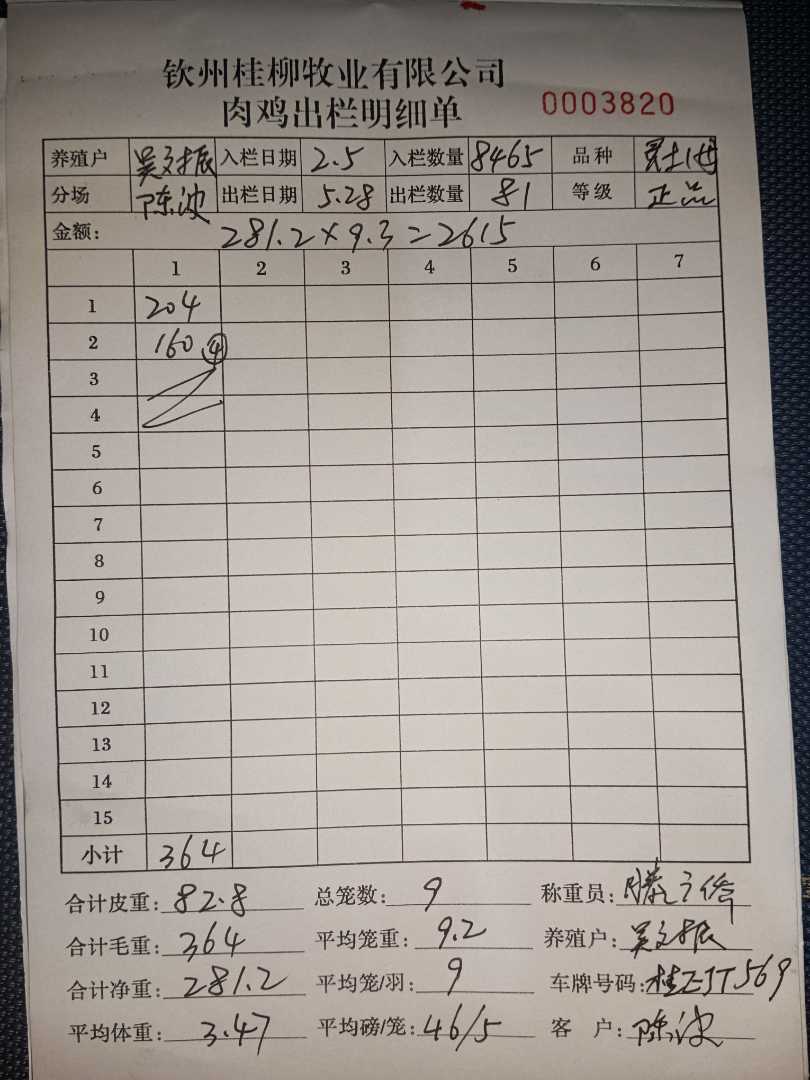 钦州桂柳牧业有限公司
肉鸡出栏明细单 0003820
养殖户 吴文振 入栏日期 2.5 入栏数量 8465 品种
分场 陈波 出栏日期 5.28 出栏数量 81 等级 正品
金额: 281.2×9.3=2615
1 2 3 4 5 6 7
1 204
2 160 ④
3
4
5
6
7
8
9
10
11
12
13
14
15
小计 364
合计皮重: 82.8 总笼数: 9 称重员:
合计毛重: 364 平均笼重: 9.2 养殖户: 吴文振
合计净重: 281.2 平均笼/羽: 9 车牌号码:
平均体重: 3.47 平均磅/笼: 46/5 客 户: 陈波